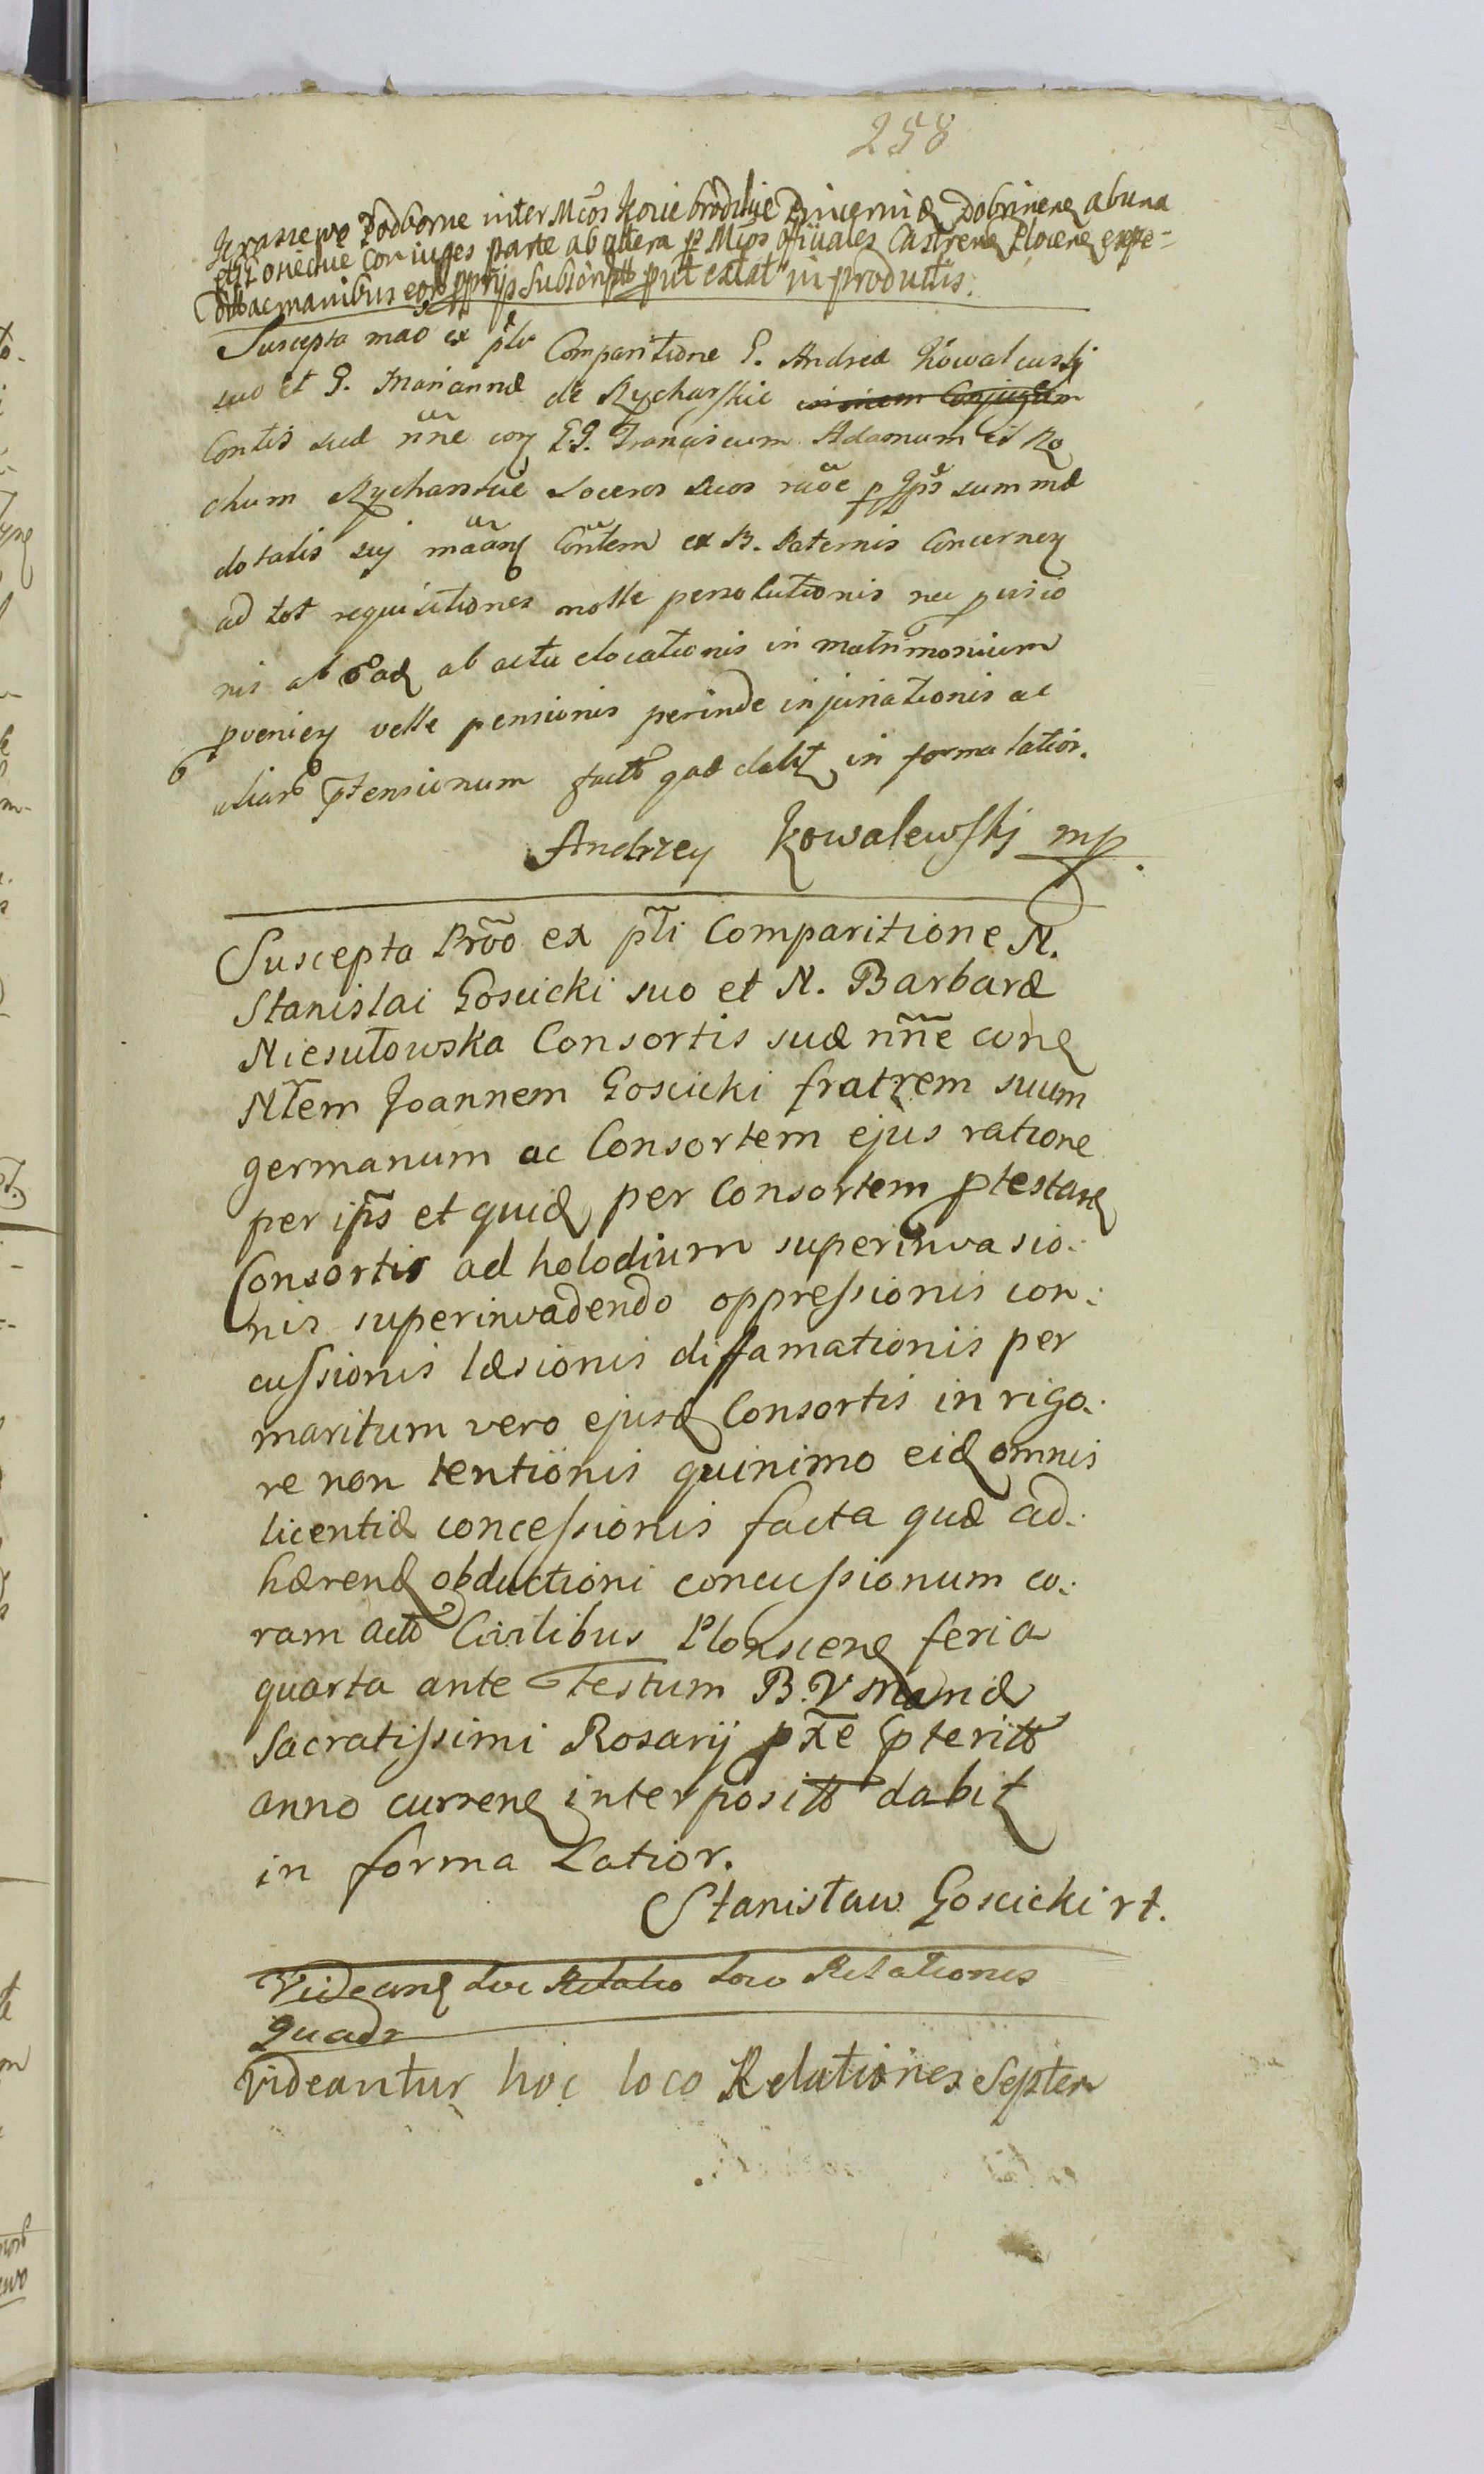 258
Kraszewo Podborne inter Mcos Jowie brodzkie Pincernidę Dobrinenę ab una
et Zoniechue Coniuges parte ab altera p Mcos offiiales Castrenę Plocenę expe=
ditt ac manibus eor pprijs subscriptt put extat in productis.
Suscepta mao ex ptli Comparitione G. Andreæ Kowalewskj
suo et G. Mariannæ de Rycharskie
Contis suæ nne conę GG. Franciscum Adamum et Ro
chum Rycharskie Soceros suos raoe p Ipsos summæ
dotalis suj maanę Contem ex B. Paternis Concernenę
ad tot requisitiones nolle persolutionis nec provisio
nis ab eadę ab actu elocationis in matrimonium
pvenienę velle pensionis perinde injuriationis ac
aliar ptensionum factt quæ dabit in forma latior.
Andrzey Kowalewskj mp.
Suscepta Proo ex ptli Comparitione N.
Stanislai Goscicki suo et N. Barbaræ
Niesułowska Consortis suæ nne conę
Nlem Joannem Goscicki fratrem suum
germanum ac Consortem ejus ratione
per ipss et quidę per Consortem ptestanę
Consortis ad holodium superinvasio:
nis superinvadendo oppressionis con:
cussionis læsionis diffamationis per
maritum vero ejusdę Consortis in rigo:
re non tentionis quinimo eidę omnis
licentiæ concessionis facta quæ ad:
hærendę obductioni concussionum co:
ram actt Civilibus Plonscenę feria
quarta ante Festum B. V Mariæ
Sacratissimi Rosarij pxe pteritt
anno currenę interpositt dabit
in forma Latior.
Stanisław Goscicki rt.
Videanę Loc Relatio Loco Relationes
Quadr
Videantur hoc loco Relationes Septem